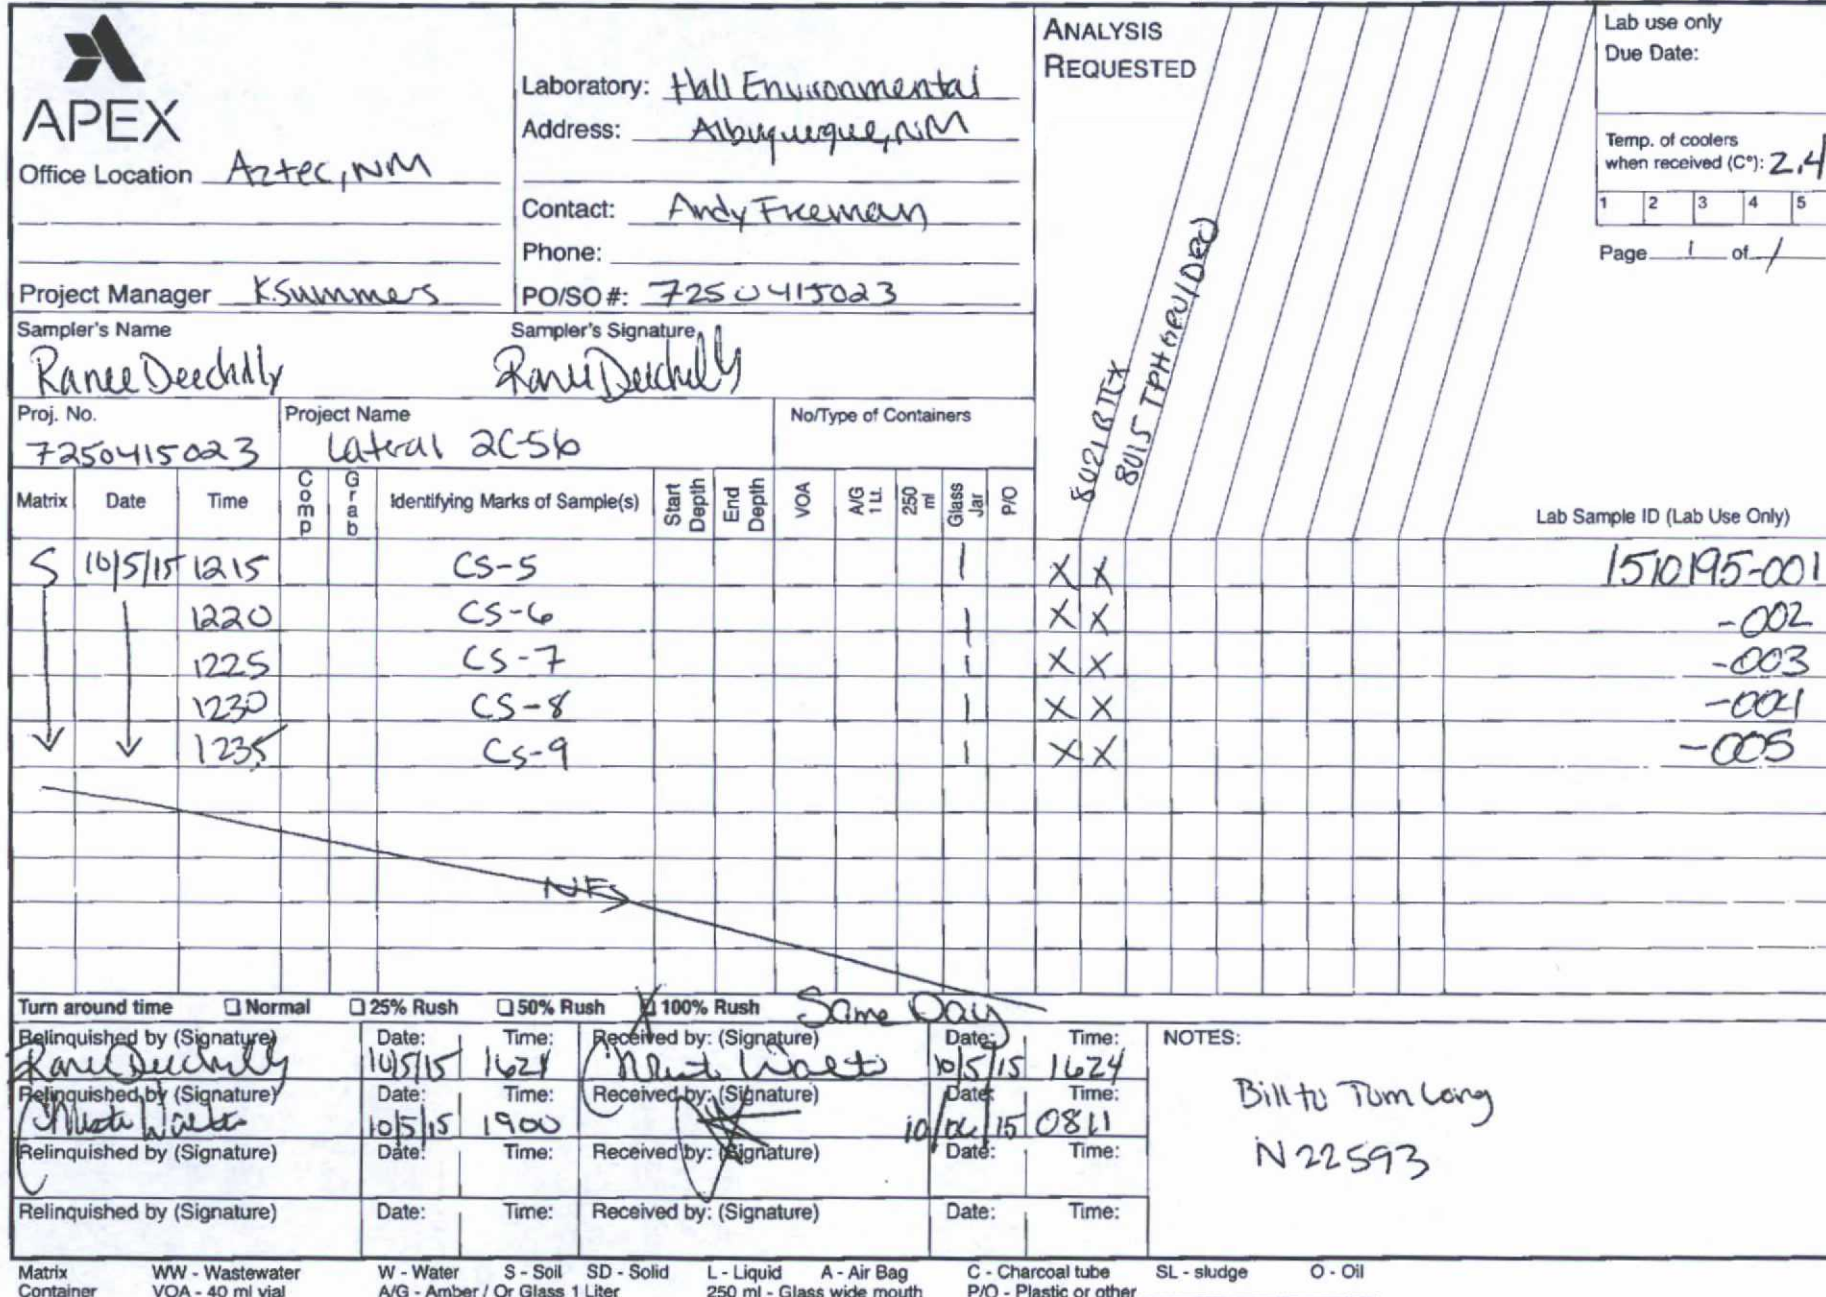 APEX
Office Location Aztec, NM
Project Manager K. Summers
Laboratory: Hall Environmental
Address: Albuquerque, NM
Contact: Andy Freeman
Phone:
PO/SO #: 7250415023
ANALYSIS
REQUESTED
8021 BTEX
8015 TPH GRO/DRO
Lab use only
Due Date:
Temp. of coolers
when received (C°): 2.4
1 2 3 4 5
Page 1 of 1
Sampler's Name
Ranee Deechilly
Sampler's Signature
Ranee Deechilly
Proj. No.
7250415023
Project Name
Lateral 2C-56
No/Type of Containers
Matrix Date Time Comp Grab Identifying Marks of Sample(s) Start Depth End Depth VOA A/G 1 Lt. 250 ml Glass Jar P/O Lab Sample ID (Lab Use Only)
S 10/5/15 1215 CS-5 1 X X 1510195-001
1220 CS-6 1 X X -002
1225 CS-7 1 X X -003
1230 CS-8 1 X X -004
1235 CS-9 1 X X -005
Turn around time Normal 25% Rush 50% Rush X 100% Rush Same Day
Relinquished by (Signature) Date: Time: Received by: (Signature) Date: Time: NOTES:
Ranee Deechilly 10/5/15 1624 10/5/15 1624
Relinquished by (Signature) Date: Time: Received by: (Signature) Date: Time:
10/5/15 1900 10/06/15 0811
Bill to Tom Long
N22593
Relinquished by (Signature) Date: Time: Received by: (Signature) Date: Time:
Relinquished by (Signature) Date: Time: Received by: (Signature) Date: Time:
Matrix WW - Wastewater W - Water S - Soil SD - Solid L - Liquid A - Air Bag C - Charcoal tube SL - sludge O - Oil
Container VOA - 40 ml vial A/G - Amber / Or Glass 1 Liter 250 ml - Glass wide mouth P/O - Plastic or other